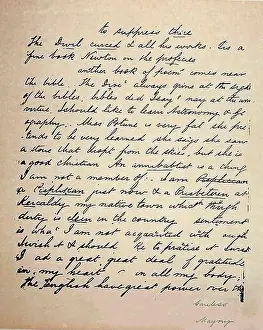 to suppress thice
The Divil curced & all his works. Tis a
fine book Newton on the profecies
another book of poem comes near
the bible The Divel always girns at the sight
of the bibles bibles did I say? nay at the
virtue, I should like to learn Astronomy & Geo
graphy. Miss Potune is very fat she pre
tends to be very learned she says she saw
a stone that dropt from the skies, but she is
a good christian An annibabtist is a thing
I am not a member of. I am
a Pisplican just now & a Prisbeteren at
Kercaldy my native town which though
dirty is clein in the country sentiment
is what I am not acquainted with
I wish it & should like to pratise it
I ad a great great deal of gratitude
in my heart in all my body.
The English have great power over the